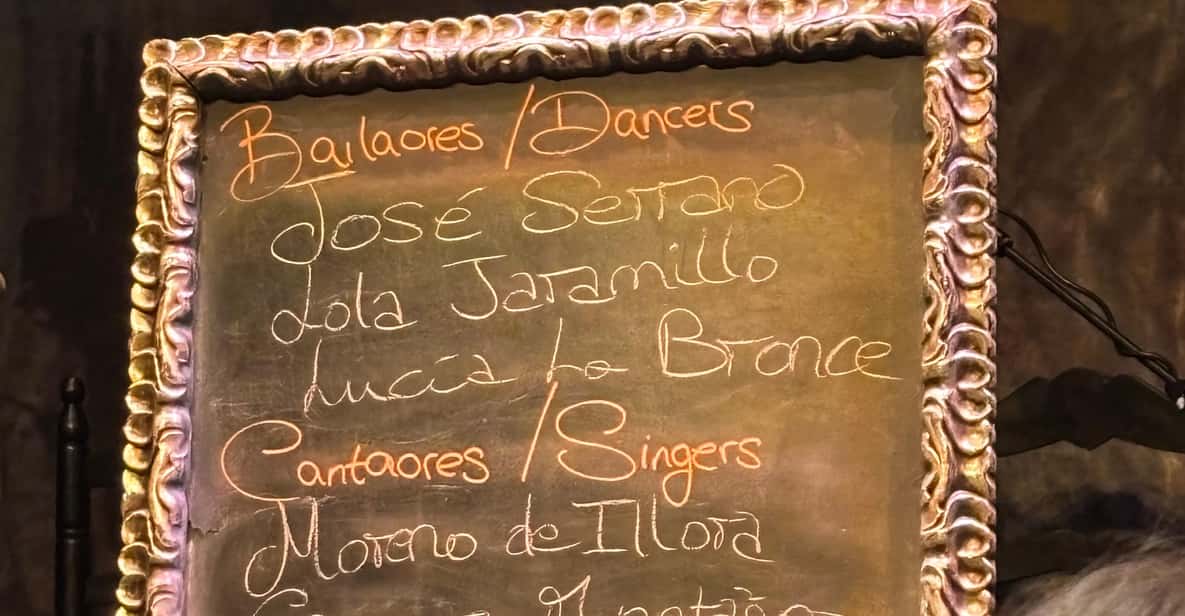 Bailaores / Dancers
José Serrano
Lola Jaramillo
Lucía La Bronce
Cantaores / Singers
Moreno de Illora